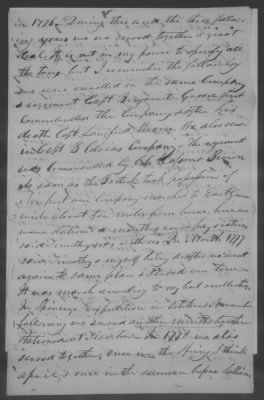 in 1776, During this and the two follow
ing years we served together a great
deal. It is not in my power to specify all
the times but I remember the following
we were enrolled in the same Company
& regiment Capt Benjamin Greene first
Commanded the Company after his
death Capt We also served
in Capt Company - The regiment
was Commanded by Col
As soon as the British took possession of
Newport our Company marched to East Green
wich about ten miles from home, where we
were stationed a month and in pay station
said Timothy was with me. In March 1777
said Timothy & myself being drafted went
again to same place & served our time
It was march according to my best recollection
In Spencers Expedition in October & November
following we served another month together
stationed at Tiverton In 1778 we also
served together once in the Spring I think
april, & once in the summer before Sullivan